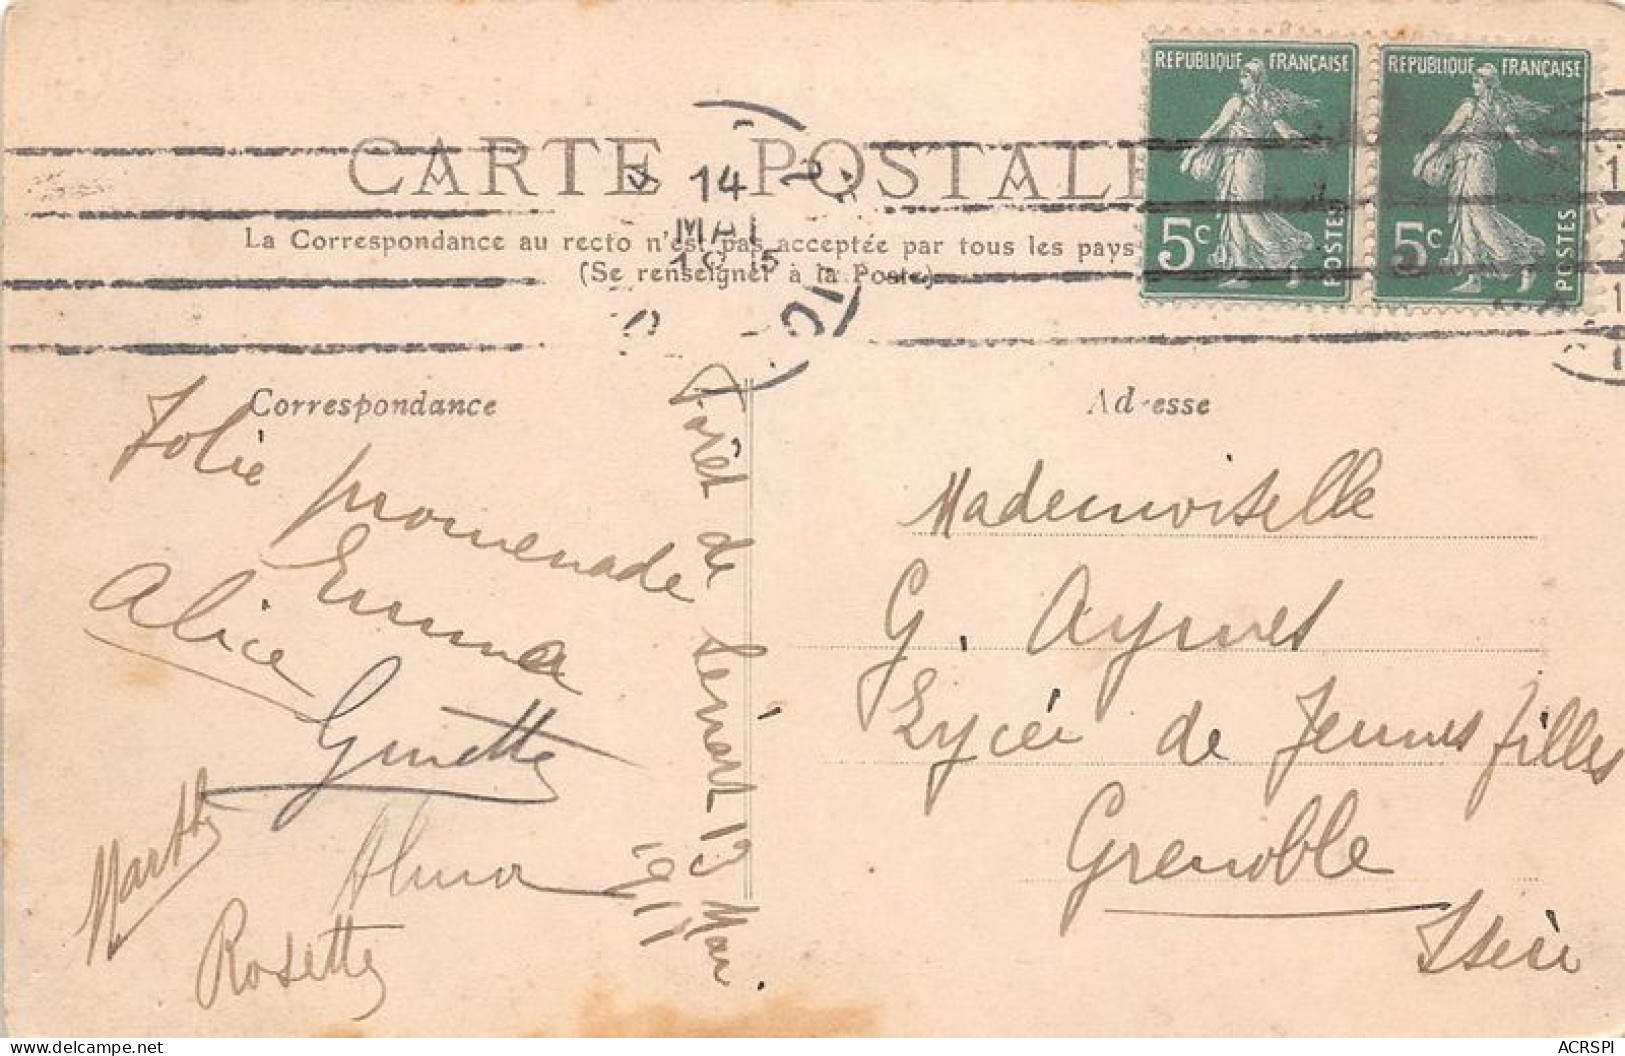 REPUBLIQUE FRANÇAISE
5c
POSTES
REPUBLIQUE FRANÇAISE
5c
POSTES
CARTE POSTALE
14
MAI
La Correspondance au recto n'est pas acceptée par tous les pays
(Se renseigner à la Poste)
Correspondance
Jolie promenade
Emma
Alice
Ginette
Marthe
Rosette
Forêt de Sénart 13 Mai
1911
Adresse
Mademoiselle
G. Aymes
Lycée de Jeunes filles
Grenoble
Isère
ACRSPI